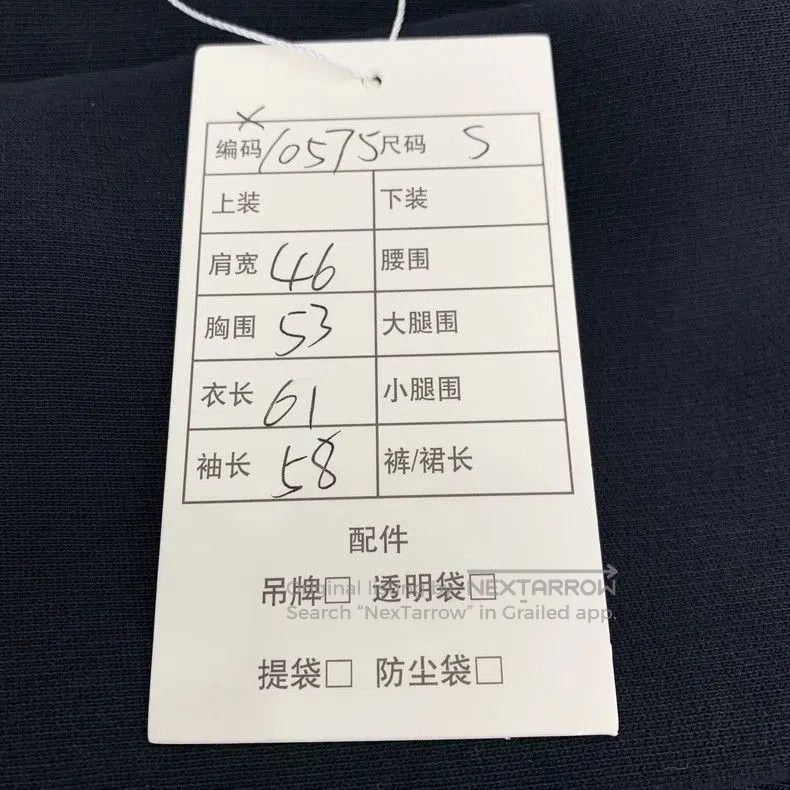 X
编码 10575 尺码 S
上装 下装
肩宽 46 腰围
胸围 53 大腿围
衣长 61 小腿围
袖长 58 裤/裙长
配件
吊牌□ 透明袋□
NEXTARROW
Search “NexTarrow” in Grailed app.
提袋□ 防尘袋□